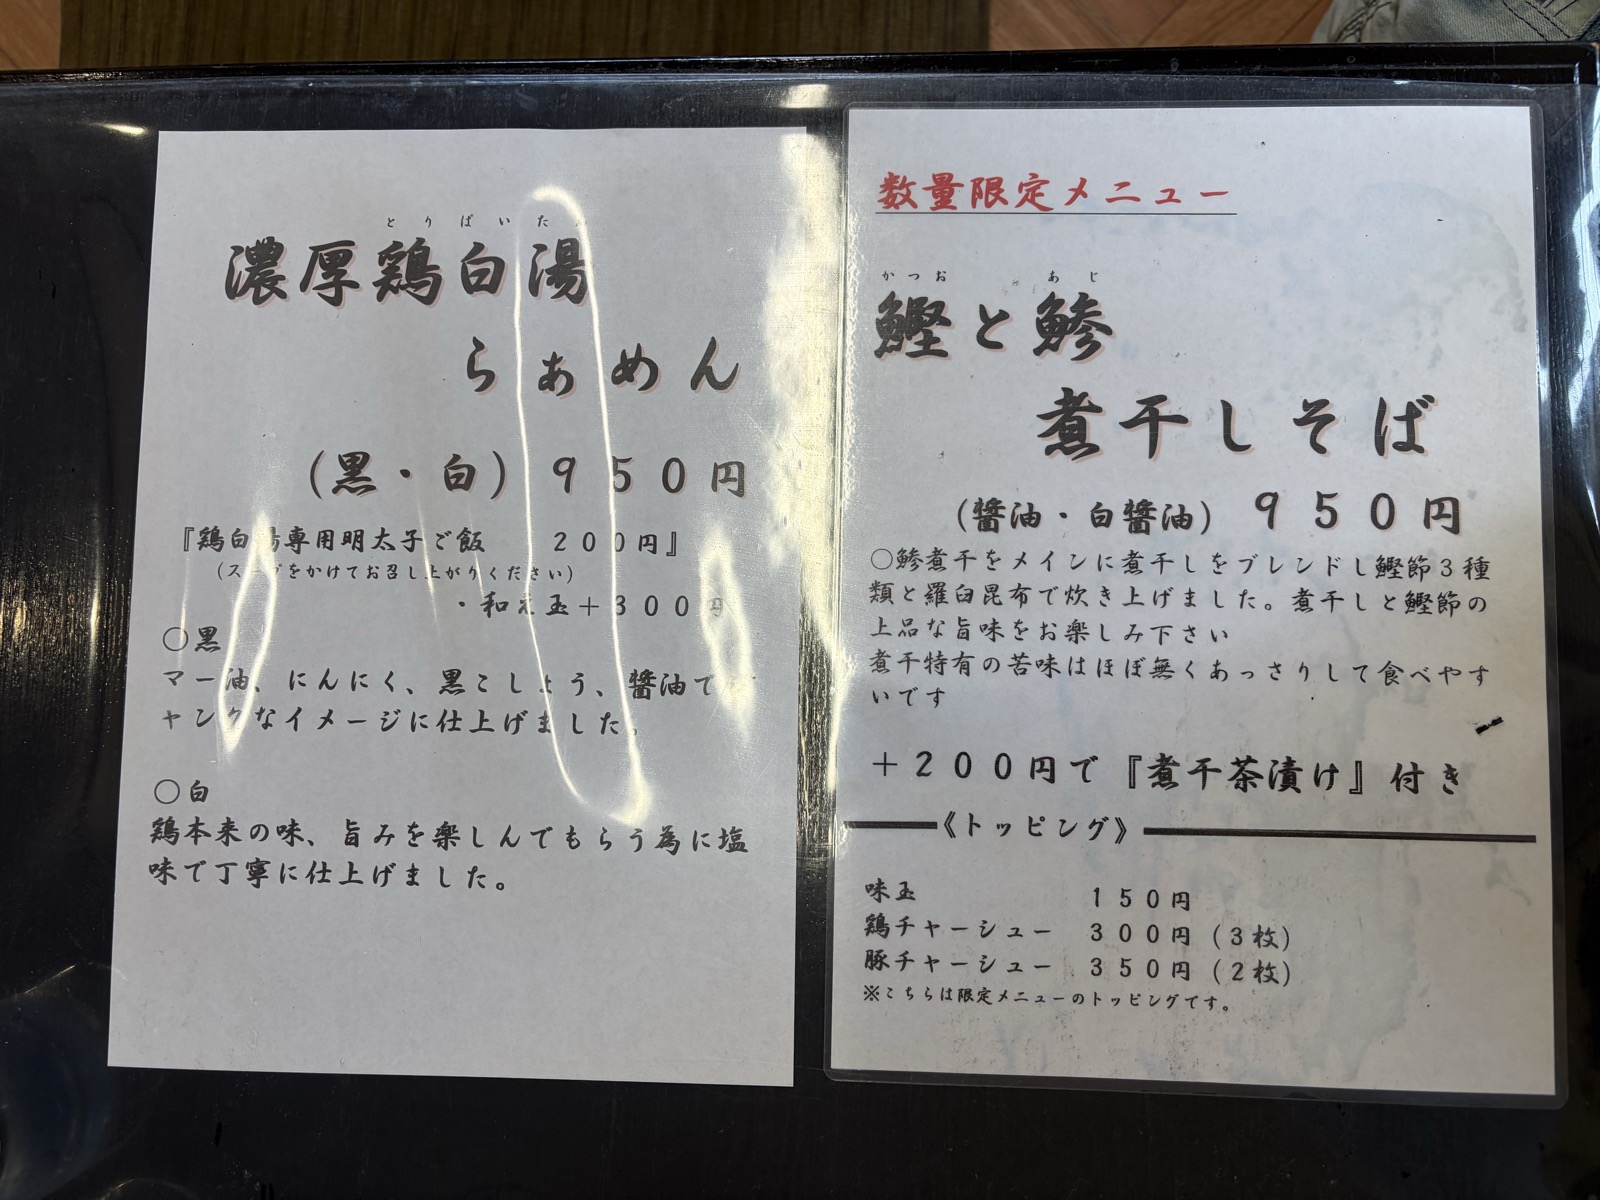 とりぱいた
濃厚鶏白湯
らぁめん
（黒・白）９５０円
『鶏白湯専用明太子ご飯　２００円』
（スープをかけてお召し上がりください）
・和え玉＋３００円
〇黒
マー油、にんにく、黒こしょう、醤油で
ャンクなイメージに仕上げました。
〇白
鶏本来の味、旨みを楽しんでもらう為に塩
味で丁寧に仕上げました。
数量限定メニュー
かつお　あじ
鰹と鯵
煮干しそば
（醤油・白醤油）９５０円
〇鯵煮干をメインに煮干しをブレンドし鰹節３種
類と羅臼昆布で炊き上げました。煮干しと鰹節の
上品な旨味をお楽しみ下さい
煮干特有の苦味はほぼ無くあっさりして食べやす
いです
＋２００円で『煮干茶漬け』付き
《トッピング》
味玉　１５０円
鶏チャーシュー　３００円（３枚）
豚チャーシュー　３５０円（２枚）
※こちらは限定メニューのトッピングです。